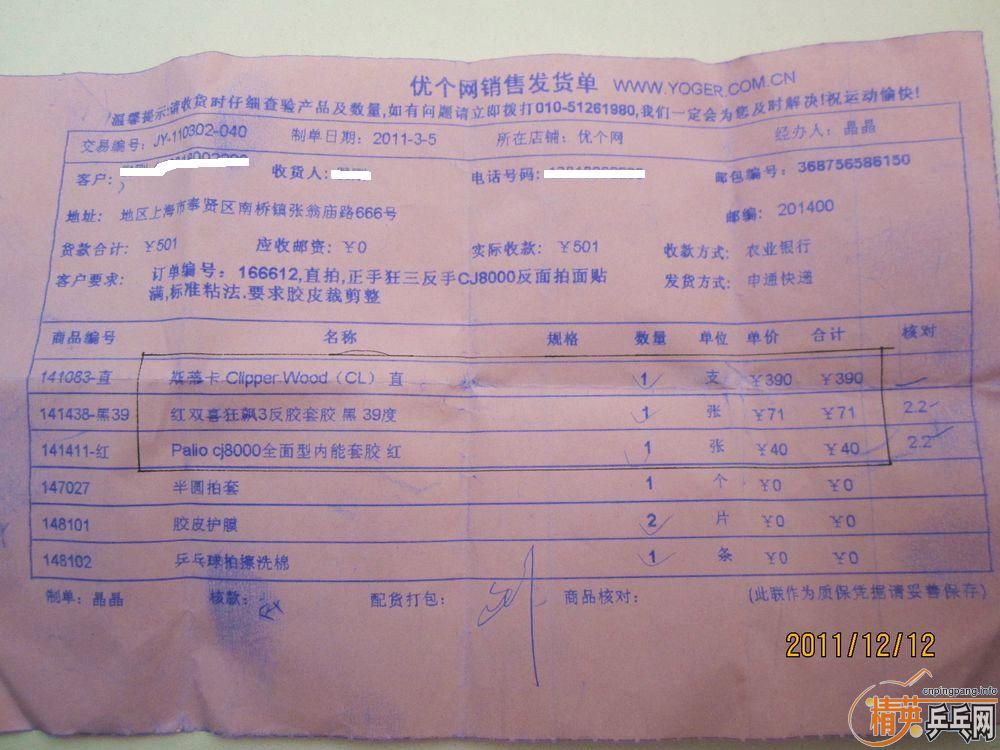 优个网销售发货单 WWW.YOGER.COM.CN
温馨提示:请收货时仔细查验产品及数量,如有问题请立即拨打010-51261980,我们一定会为您及时解决!祝运动愉快!
交易编号: JY-110302-040 制单日期: 2011-3-5 所在店铺: 优个网 经办人: 晶晶
客户: ) 收货人: 电话号码: 邮包编号: 368756586150
地址: 地区上海市奉贤区南桥镇张翁庙路666号 邮编: 201400
货款合计: ￥501 应收邮资: ￥0 实际收款: ￥501 收款方式: 农业银行
客户要求: 订单编号: 166612,直拍,正手狂三反手CJ8000反面拍面贴 发货方式: 申通快递
满,标准粘法.要求胶皮裁剪整
商品编号 名称 规格 数量 单位 单价 合计 核对
141083-直 斯蒂卡 Clipper Wood（CL）直 1 支 ￥390 ￥390
141438-黑39 红双喜狂飙3反胶套胶 黑 39度 1 张 ￥71 ￥71 2.2
141411-红 Palio cj8000全面型内能套胶 红 1 张 ￥40 ￥40 2.2
147027 半圆拍套 1 个 ￥0 ￥0
148101 胶皮护膜 2 片 ￥0 ￥0
148102 乒乓球拍擦洗棉 1 条 ￥0 ￥0
制单: 晶晶 核款: 配货打包: 商品核对: (此联作为质保凭据请妥善保存)
2011/12/12
cnpingpang.info
精英乒乓网